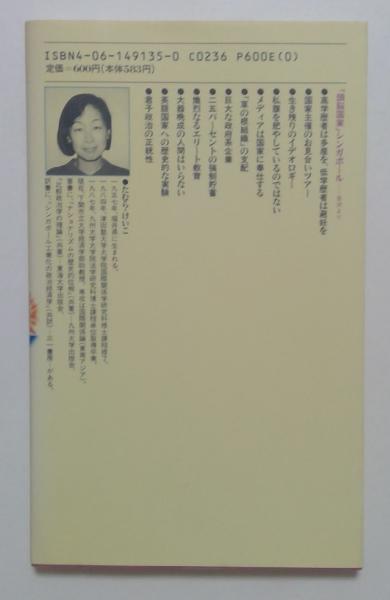 ISBN4-06-149135-0 C0236 P600E(0)
定価=600円(本体583円)
『頭脳国家』シンガポール—目次より
●高学歴者は多産を、低学歴者は避妊を
●国家主催のお見合いツアー
●生き残りのイデオロギー
●私腹を肥やしているのではない
●メディアは国家に奉仕する
●「草の根組織」の支配
●巨大な政府系企業
●二五パーセントの強制貯蓄
●熾烈なるエリート教育
●大器晩成の人間はいらない
●英語国家への歴史的な実験
●君子政治の正統性
●たむら・けいこ
一九五七年、福井県に生まれる。
一九八四年、津田塾大学大学院国際関係学研究科修士課程修了。
一九八七年、九州大学大学院法学研究科博士課程単位取得卒業。
現在、下関市立大学経済学部助教授。専攻は国際関係論(東南アジア)。
著書に、『ナショナリズムの歴史的位相』(共著)—九州大学出版会、
『比較政治学の理論』(共著)—東海大学出版会、
訳書に、『シンガポール工業化の政治経済学』(共訳)—三一書房—がある。